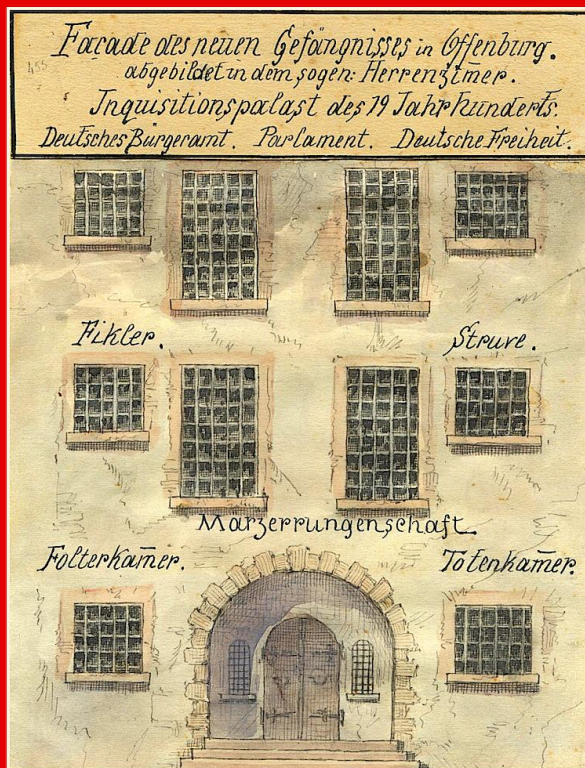 Façade des neuen Gefängnisses in Offenburg.
abgebildet in dem sogen: Herrenzim̄er.
Inquisitionspalast des 19 Jahrhunderts.
Deutsches Bürgeramt. Parlament. Deutsche Freiheit.
455
Fikler. Struve.
Märzerrungenschaft.
Folterkam̄er. Totenkam̄er.